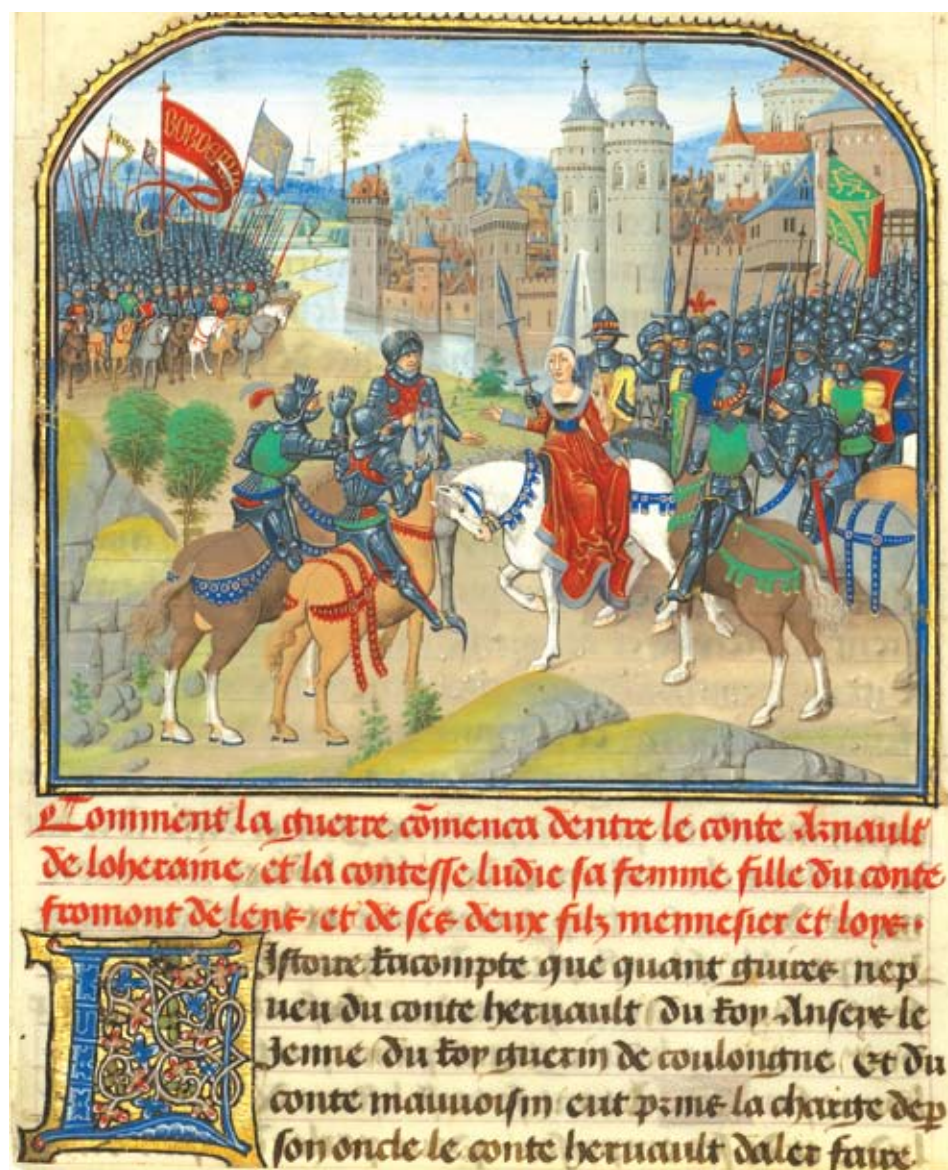 Comment la guerre cōmenca dentre le conte Arnault
de loheraine et la contesse ludie sa femme fille du conte
fromont de lens et de ses deux filz mennesier et loys.
LIstoire Racompte que quant guires nep
ueu du conte heruault du Roy Anseys le
Jenne du Roy guerin de coulongne Et du
conte mauuoisin eut prins la charge dep
son oncle le conte heruault daler faire